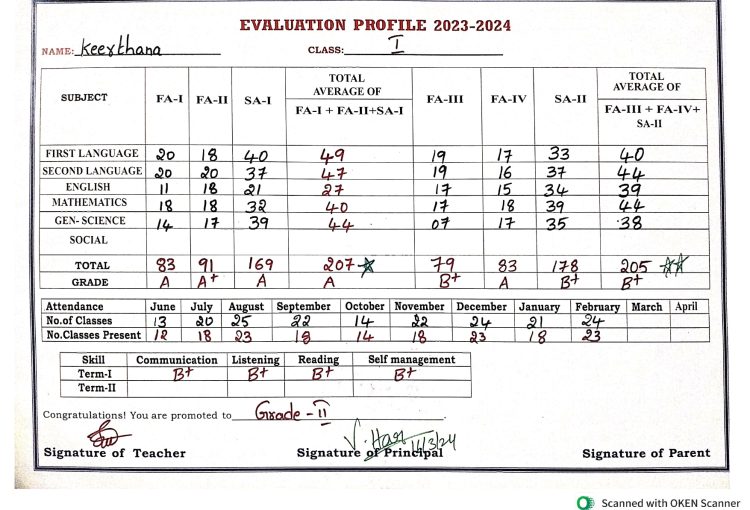 EVALUATION PROFILE 2023-2024
NAME: Keerthana CLASS: I
SUBJECT FA-I FA-II SA-I TOTAL AVERAGE OF FA-I + FA-II+SA-I FA-III FA-IV SA-II TOTAL AVERAGE OF FA-III + FA-IV+ SA-II
FIRST LANGUAGE 20 18 40 49 19 17 33 40
SECOND LANGUAGE 20 20 37 47 19 16 37 44
ENGLISH 11 18 21 27 17 15 34 39
MATHEMATICS 18 18 32 40 17 18 39 44
GEN- SCIENCE 14 17 39 44 07 17 35 38
SOCIAL
TOTAL 83 91 169 207 79 83 178 205
GRADE A A+ A A B+ A B+ B+
Attendance June July August September October November December January February March April
No.of Classes 13 20 25 22 14 22 24 21 24
No.Classes Present 12 18 23 18 14 18 23 18 23
Skill Communication Listening Reading Self management
Term-I B+ B+ B+ B+
Term-II
Congratulations! You are promoted to Grade - II
Signature of Teacher Signature of Principal Signature of Parent
Scanned with OKEN Scanner